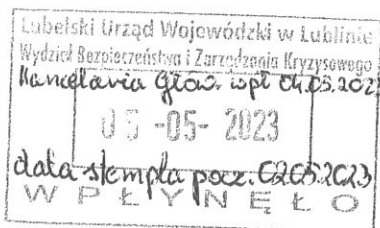 Lubelski Urząd Wojewódzki w Lublinie
Wydział Bezpieczeństwa i Zarządzania Kryzysowego
Kancelaria Głów. wpł. 04.05.202
05 -05- 2023
data stempla pocz. 02.05.2023
WPŁYNĘŁO